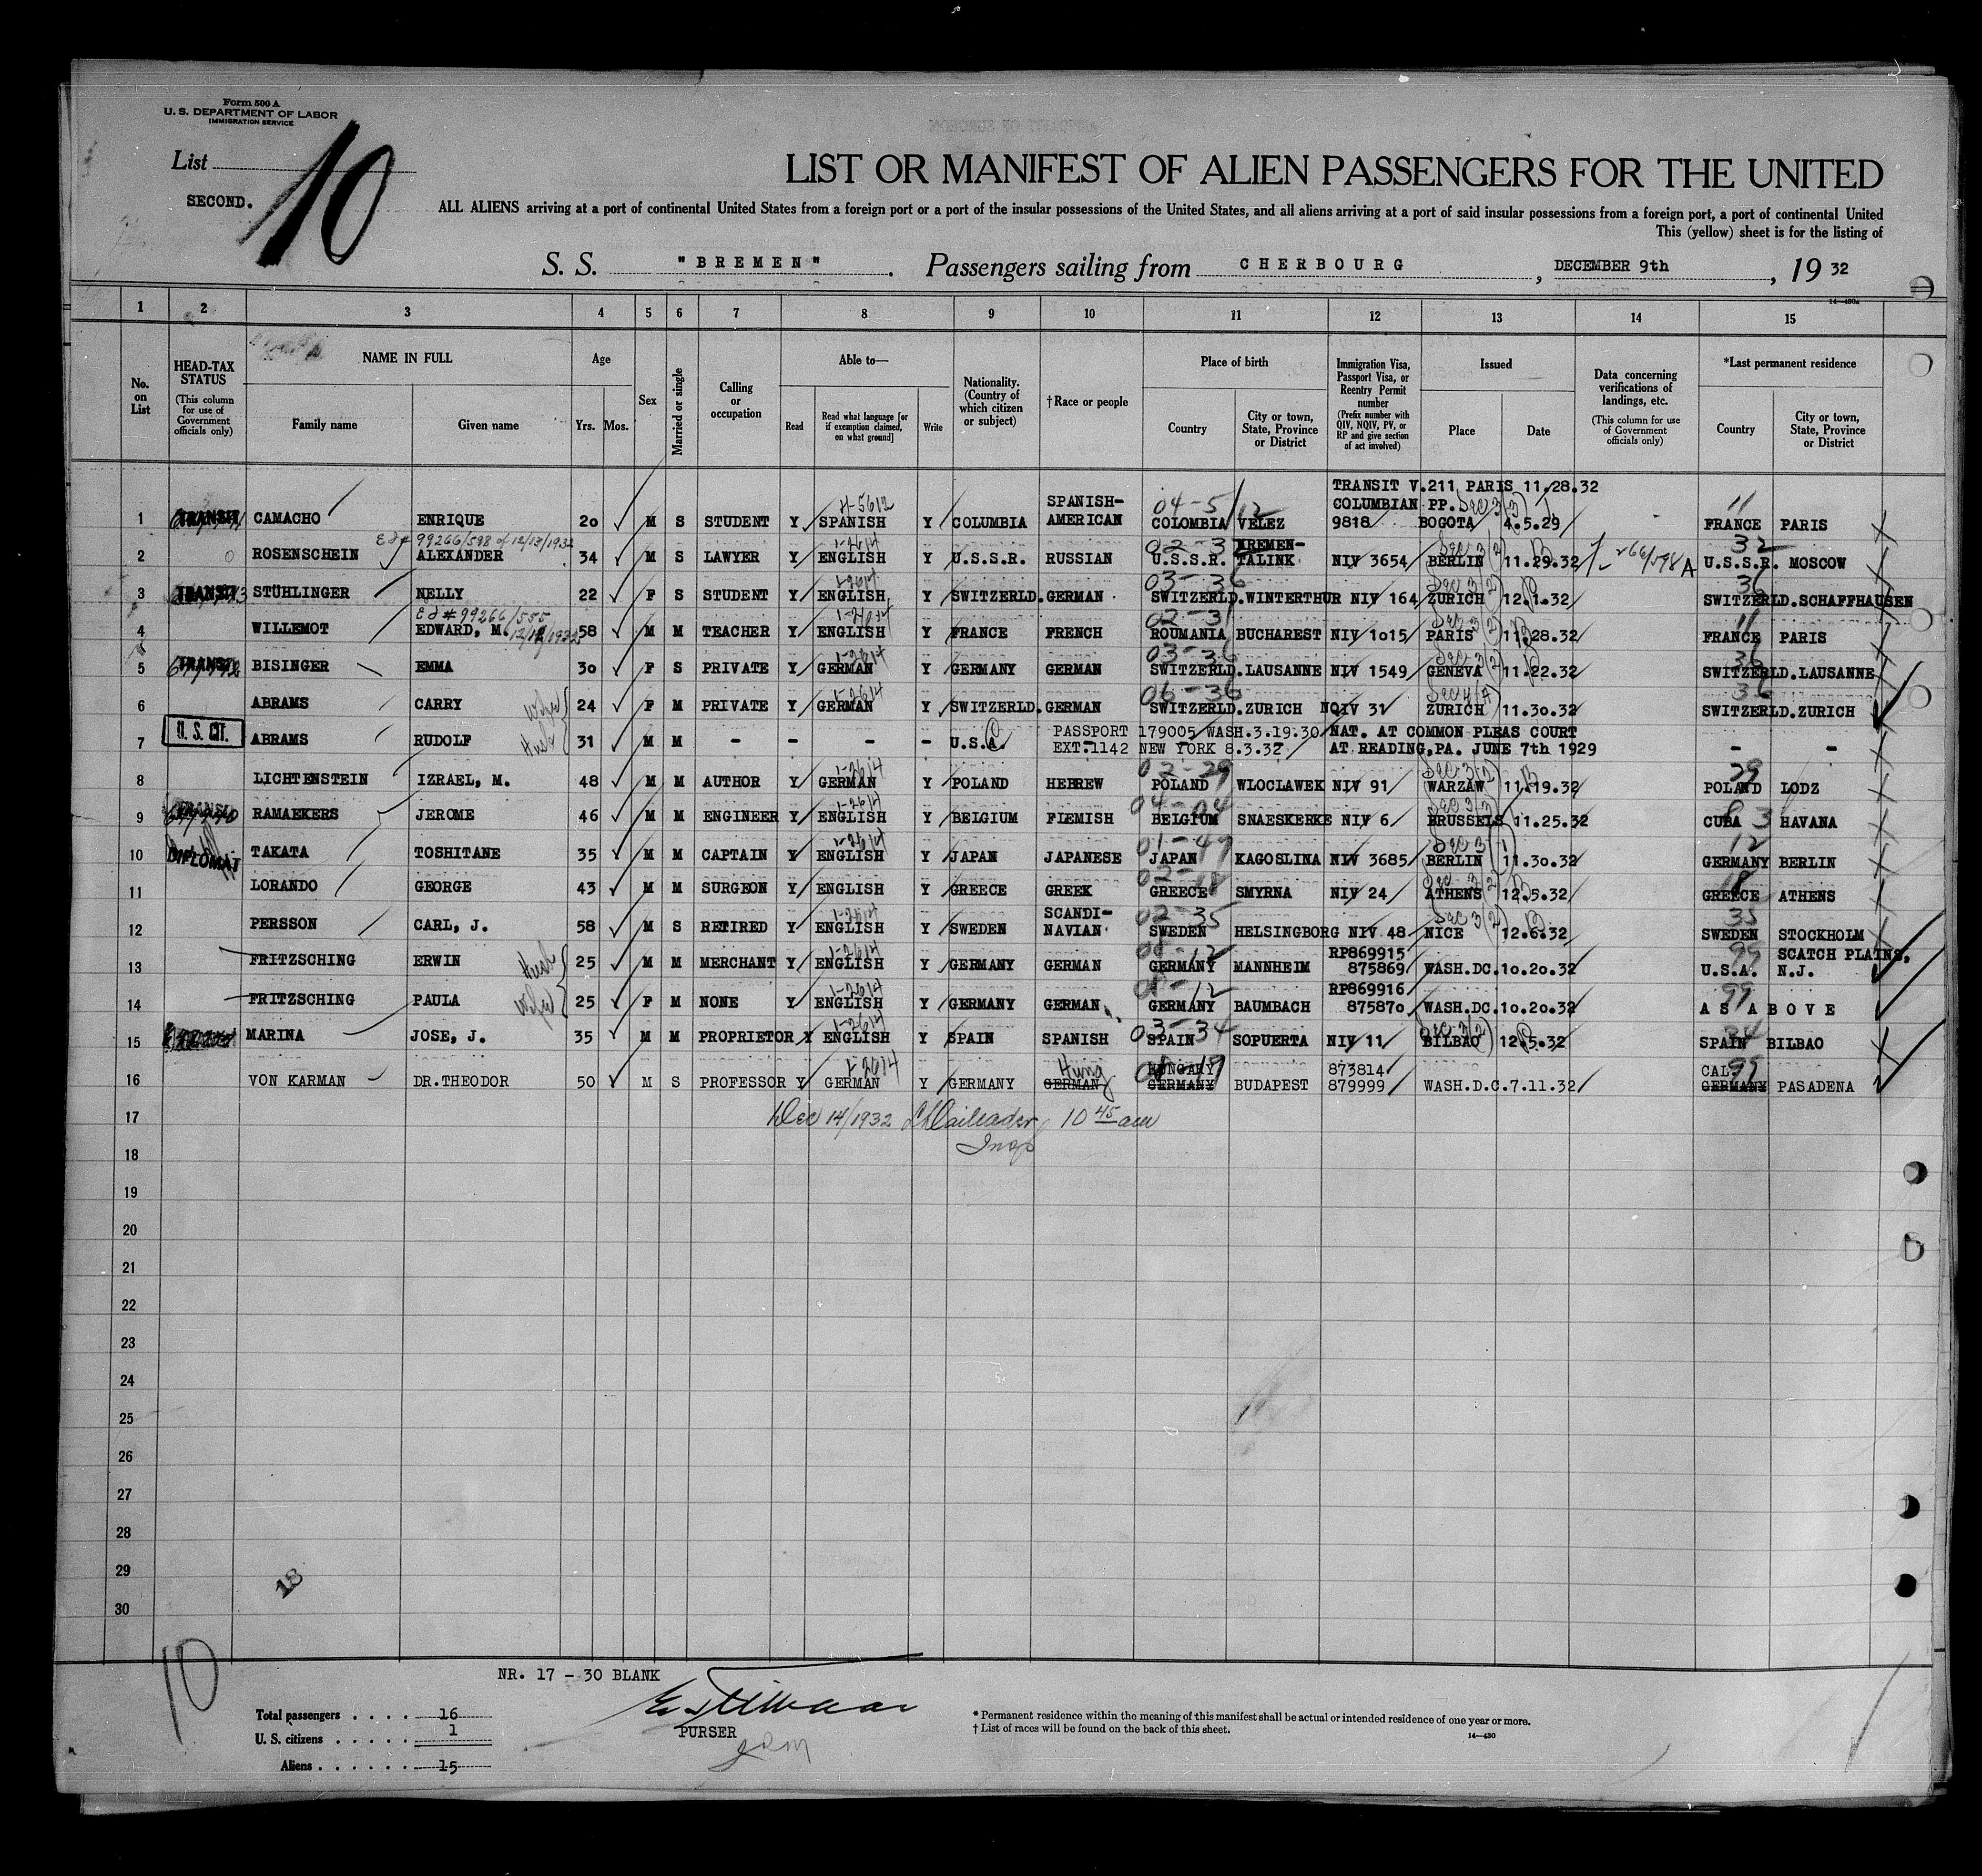 Form 500 A
U. S. DEPARTMENT OF LABOR
IMMIGRATION SERVICE
List 10
SECOND.
LIST OR MANIFEST OF ALIEN PASSENGERS FOR THE UNITED
ALL ALIENS arriving at a port of continental United States from a foreign port or a port of the insular possessions of the United States, and all aliens arriving at a port of said insular possessions from a foreign port, a port of continental United
This (yellow) sheet is for the listing of
S. S. "BREMEN". Passengers sailing from CHERBOURG, DECEMBER 9th, 19 32
14—430a
1 2 3 4 5 6 7 8 9 10 11 12 13 14 15
No. on List
HEAD-TAX STATUS (This column for use of Government officials only)
NAME IN FULL Family name Given name
Age Yrs. Mos.
Sex
Married or single
Calling or occupation
Able to— Read Read what language [or if exemption claimed, on what ground] Write
Nationality. (Country of which citizen or subject)
† Race or people
Place of birth Country City or town, State, Province or District
Immigration Visa, Passport Visa, or Reentry Permit number (Prefix number with QIV, NQIV, PV, or RP and give section of act involved)
Issued Place Date
Data concerning verifications of landings, etc. (This column for use of Government officials only)
*Last permanent residence Country City or town, State, Province or District
TRANSIT V.211 PARIS 11.28.32
H-5612 SPANISH- 04-5/12 COLUMBIAN PP. Sec 3(3) 11
1 TRANSIT CAMACHO ENRIQUE 20 M S STUDENT Y SPANISH Y COLUMBIA AMERICAN COLOMBIA VELEZ 9818 BOGOTA 4.5.29 FRANCE PARIS
Ed # 99266/598 of 12/13/1932 1-2614 02-32 KREMEN- Sec 3(2) B 32
2 0 ROSENSCHEIN ALEXANDER 34 M S LAWYER Y ENGLISH Y U.S.S.R. RUSSIAN U.S.S.R. TALINK NIV 3654 BERLIN 11.29.32 266/598A U.S.S.R. MOSCOW
1-2614 03-36 Sec 3(2) 36
3 TRANSIT STÜHLINGER NELLY 22 F S STUDENT Y ENGLISH Y SWITZERLD. GERMAN SWITZERLD. WINTERTHUR NIV 164 ZURICH 12.1.32 SWITZERLD. SCHAFFHAUSEN
Ed # 99266/555 02-31 Sec 3(2) B 11
4 WILLEMOT EDWARD, M. 58 M M TEACHER Y ENGLISH Y FRANCE FRENCH ROUMANIA BUCHAREST NIV 1015 PARIS 11.28.32 FRANCE PARIS
1-2614 03-36 Sec 3(2) 36
5 TRANSIT BISINGER EMMA 30 F S PRIVATE Y GERMAN Y GERMANY GERMAN SWITZERLD. LAUSANNE NIV 1549 GENEVA 11.22.32 SWITZERLD. LAUSANNE
Wife 1-2614 06-36 Sec 4(A) 36
6 ABRAMS CARRY 24 F M PRIVATE Y GERMAN Y SWITZERLD. GERMAN SWITZERLD. ZURICH NQIV 31 ZURICH 11.30.32 SWITZERLD. ZURICH
U. S. CIT. Husb PASSPORT 179005 WASH. 3.19.30 NAT. AT COMMON PLEAS COURT
7 ABRAMS RUDOLF 31 M M - - - - U.S.A. EXT. 1142 NEW YORK 8.3.32 AT READING, PA. JUNE 7th 1929 - -
1-2614 02-29 Sec 3(2) B 29
8 LICHTENSTEIN IZRAEL, M. 48 M M AUTHOR Y GERMAN Y POLAND HEBREW POLAND WLOCLAWEK NIV 91 WARZAW 11.19.32 POLAND LODZ
1-2614 04-04 Sec 3(3) 3
9 TRANSIT RAMAEKERS JEROME 46 M M ENGINEER Y ENGLISH Y BELGIUM FLEMISH BELGIUM SNAESKERKE NIV 6 BRUSSELS 11.25.32 CUBA HAVANA
1-2614 01-49 Sec 3(1) 12
10 DIPLOMAT TAKATA TOSHITANE 35 M M CAPTAIN Y ENGLISH Y JAPAN JAPANESE JAPAN KAGOSLINA NIV 3685 BERLIN 11.30.32 GERMANY BERLIN
02-18 Sec 3(2) B 18
11 LORANDO GEORGE 43 M M SURGEON Y ENGLISH Y GREECE GREEK GREECE SMYRNA NIV 24 ATHENS 12.5.32 GREECE ATHENS
1-2614 SCANDI- 02-35 Sec 3(2) B 35
12 PERSSON CARL, J. 58 M S RETIRED Y ENGLISH Y SWEDEN NAVIAN SWEDEN HELSINGBORG NIV 48 NICE 12.6.32 SWEDEN STOCKHOLM
Husb 1-2614 08-12 RP869915 99 SCATCH PLAINS,
13 FRITZSCHING ERWIN 25 M M MERCHANT Y ENGLISH Y GERMANY GERMAN GERMANY MANNHEIM 875869 WASH.DC. 10.20.32 U.S.A. N.J.
Wife 1-2614 08-12 RP869916 99
14 FRITZSCHING PAULA 25 F M NONE Y ENGLISH Y GERMANY GERMAN GERMANY BAUMBACH 875870 WASH.DC. 10.20.32 AS ABOVE
1-2614 03-34 Sec 3(2) 34
15 MARINA JOSE, J. 35 M M PROPRIETOR Y ENGLISH Y SPAIN SPANISH SPAIN SOPUERTA NIV 11 BILBAO 12.5.32 SPAIN BILBAO
1-2614 Hung 08-19 HUNGARY 873814 CAL. 99
16 VON KARMAN DR. THEODOR 50 M S PROFESSOR Y GERMAN Y GERMANY GERMAN GERMANY BUDAPEST 879999 WASH.D.C. 7.11.32 GERMANY PASADENA
17 Dec 14/1932 10 45 am
Insp
18
19
20
21
22
23
24
25
26
27
28
29
18
30
10
NR. 17 - 30 BLANK
Total passengers . . . . 16
U. S. citizens . . . . . 1
Aliens . . . . . . 15
PURSER
* Permanent residence within the meaning of this manifest shall be actual or intended residence of one year or more.
† List of races will be found on the back of this sheet.
14—430